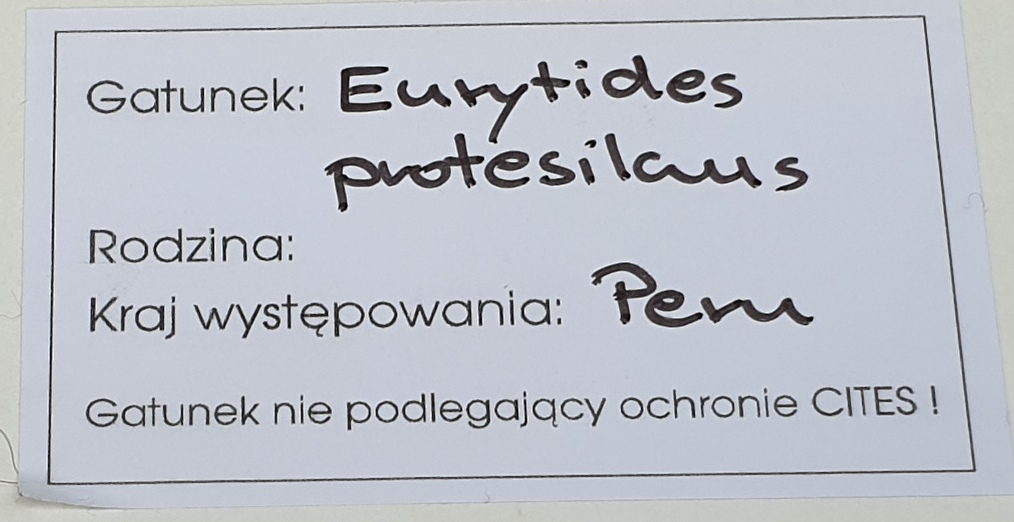 Gatunek: Eurytides
protesilaus
Rodzina:
Kraj występowania: Peru
Gatunek nie podlegający ochronie CITES !